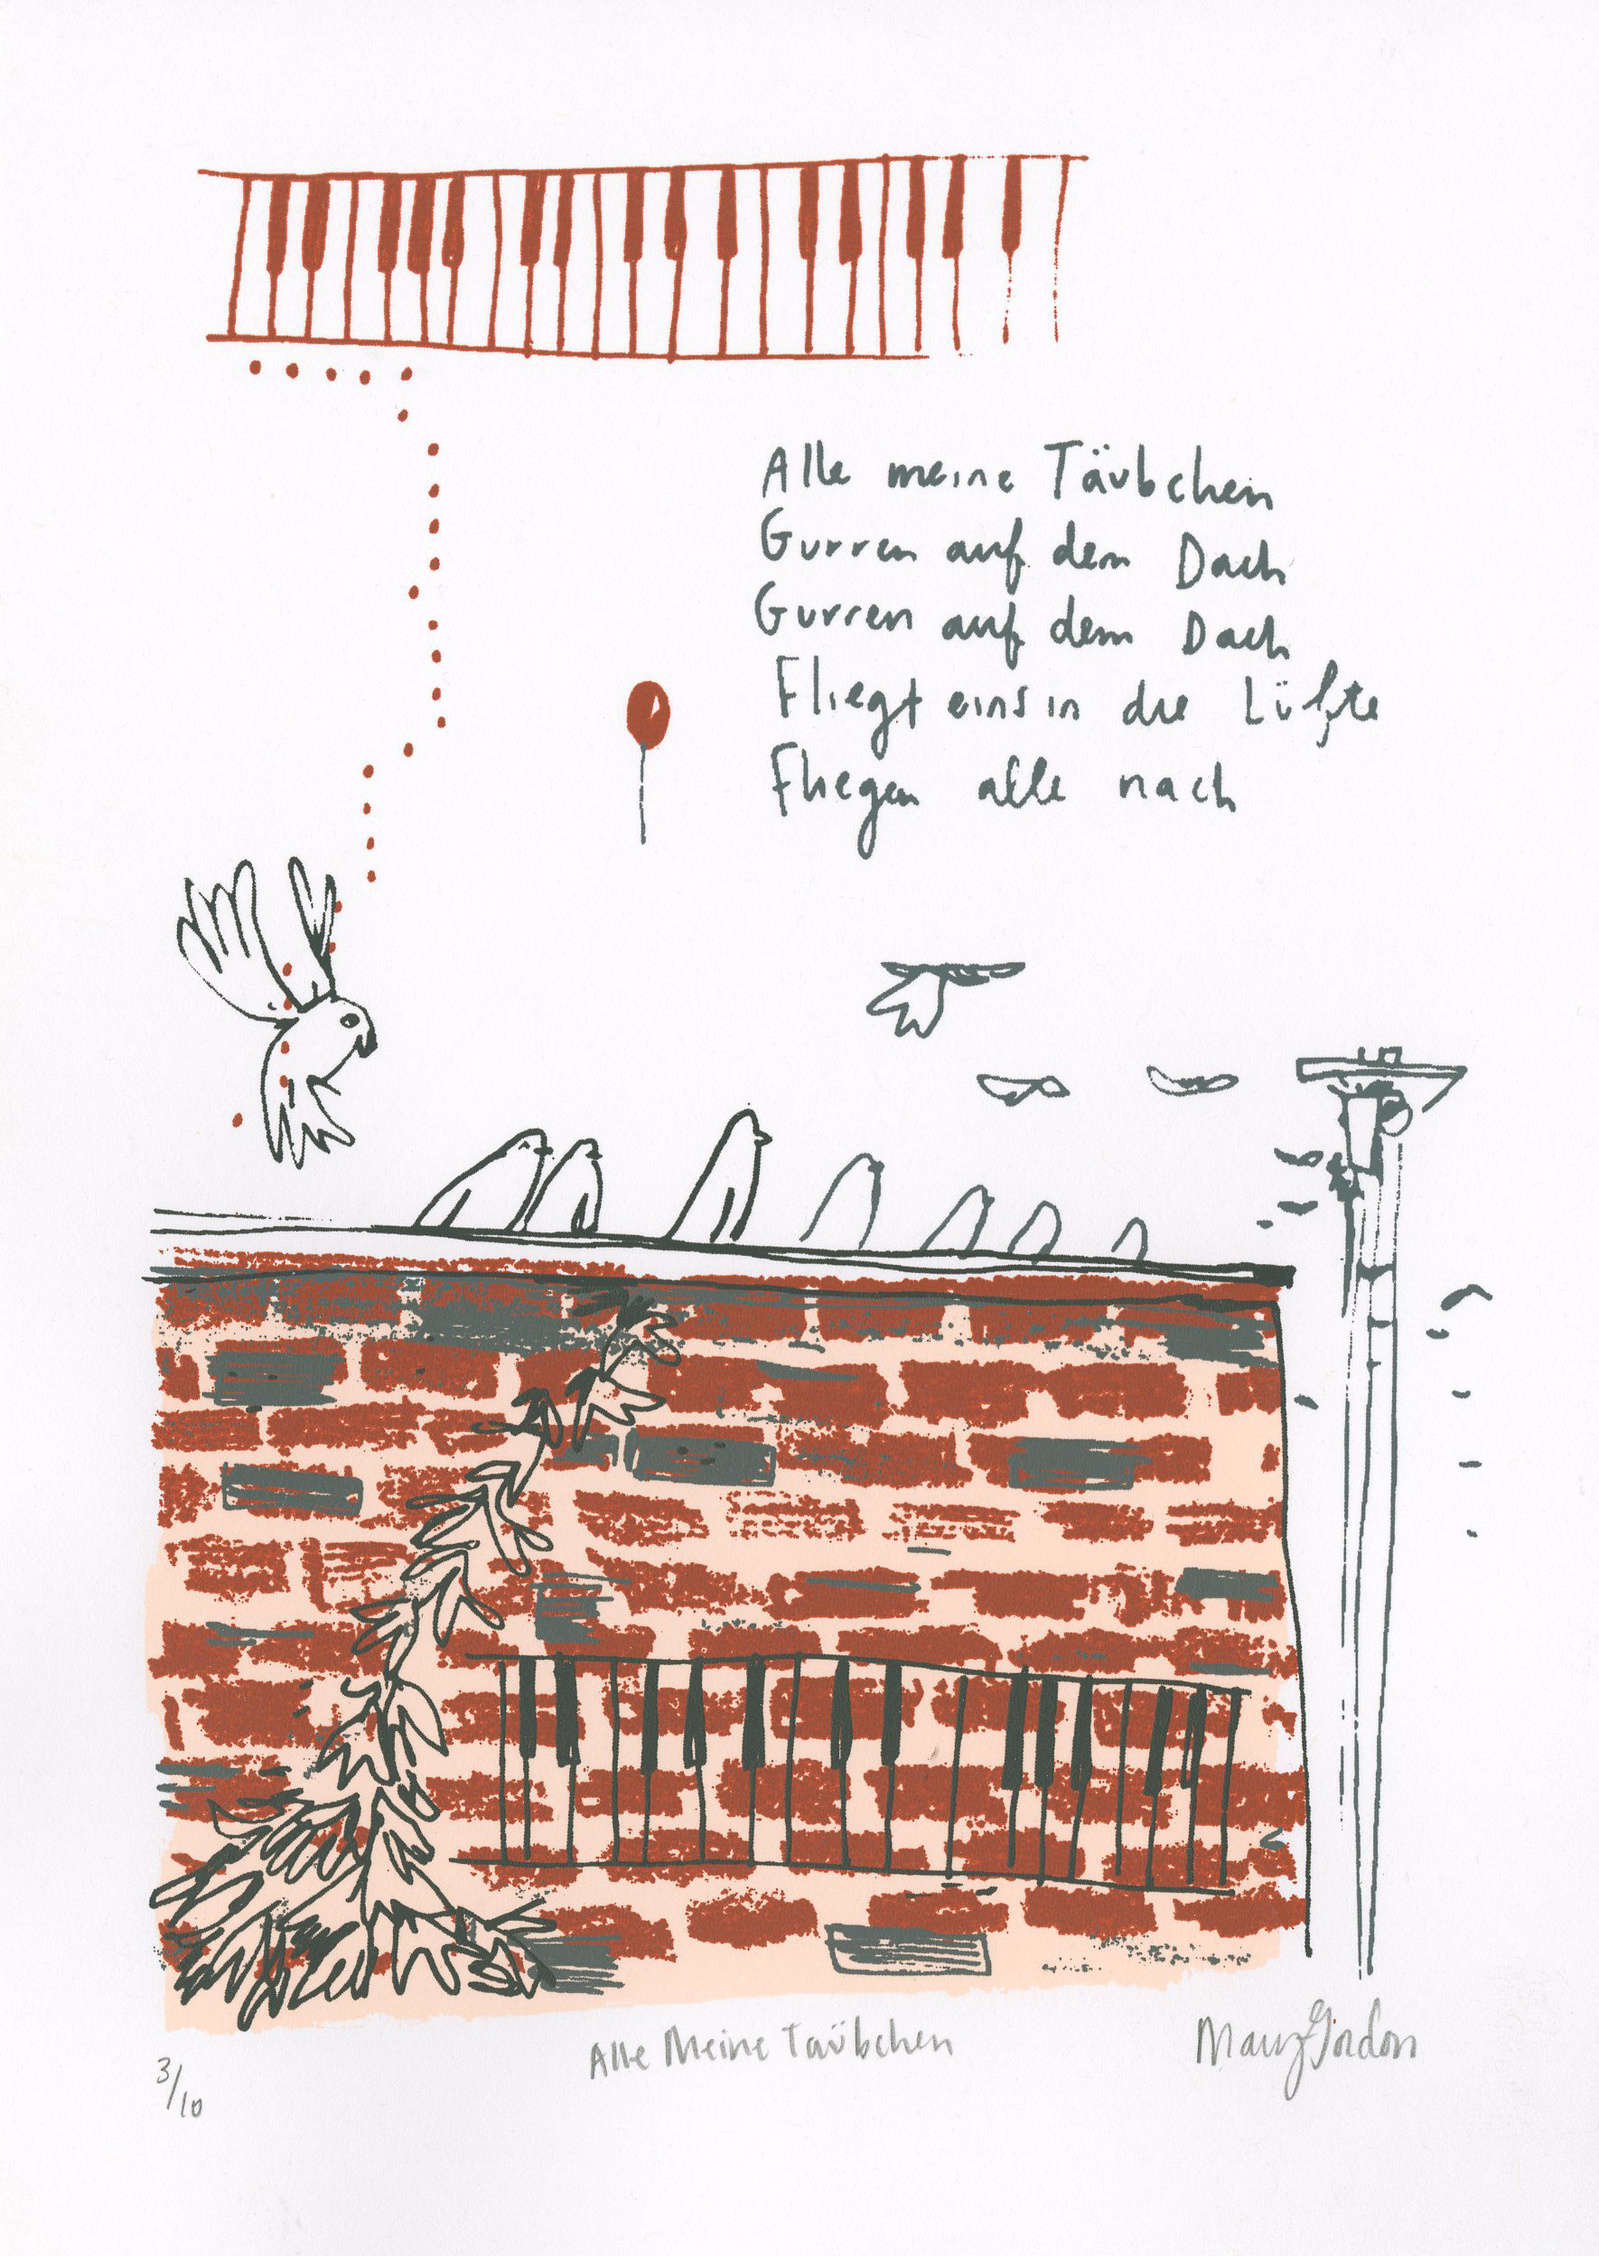 Alle meine Täubchen
Gurren auf dem Dach
Gurren auf dem Dach
Fliegt eins in die Lüfte
Fliegen alle nach
Alle Meine Taübchen
3/10
Gordon